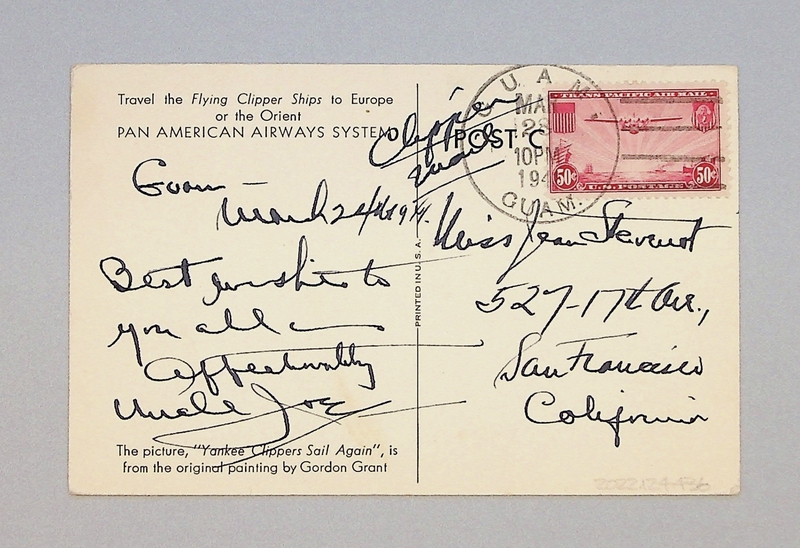 Travel the Flying Clipper Ships to Europe
or the Orient
PAN AMERICAN AIRWAYS SYSTEM
Clipper
Mail
POST C
GUAM,
MAR
10PM
194
GUAM.
TRANS-PACIFIC AIR MAIL
50¢ 50¢
U.S. POSTAGE
Guam
March 24th 194
Best wishes to
you all
Affectionately
Uncle Joe
PRINTED IN U.S.A.
Miss Jean Stevenot
527-17th Ave.,
San Francisco
California
The picture, "Yankee Clippers Sail Again", is
from the original painting by Gordon Grant
2022.124.436